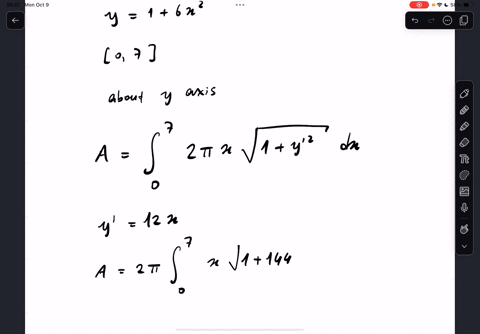 Mon Oct 9
y = 1 + 6x²
[0, 7]
about y axis
A = ∫₀⁷ 2π x √(1 + y'²) dx
y' = 12x
A = 2π ∫₀⁷ x √1 + 144